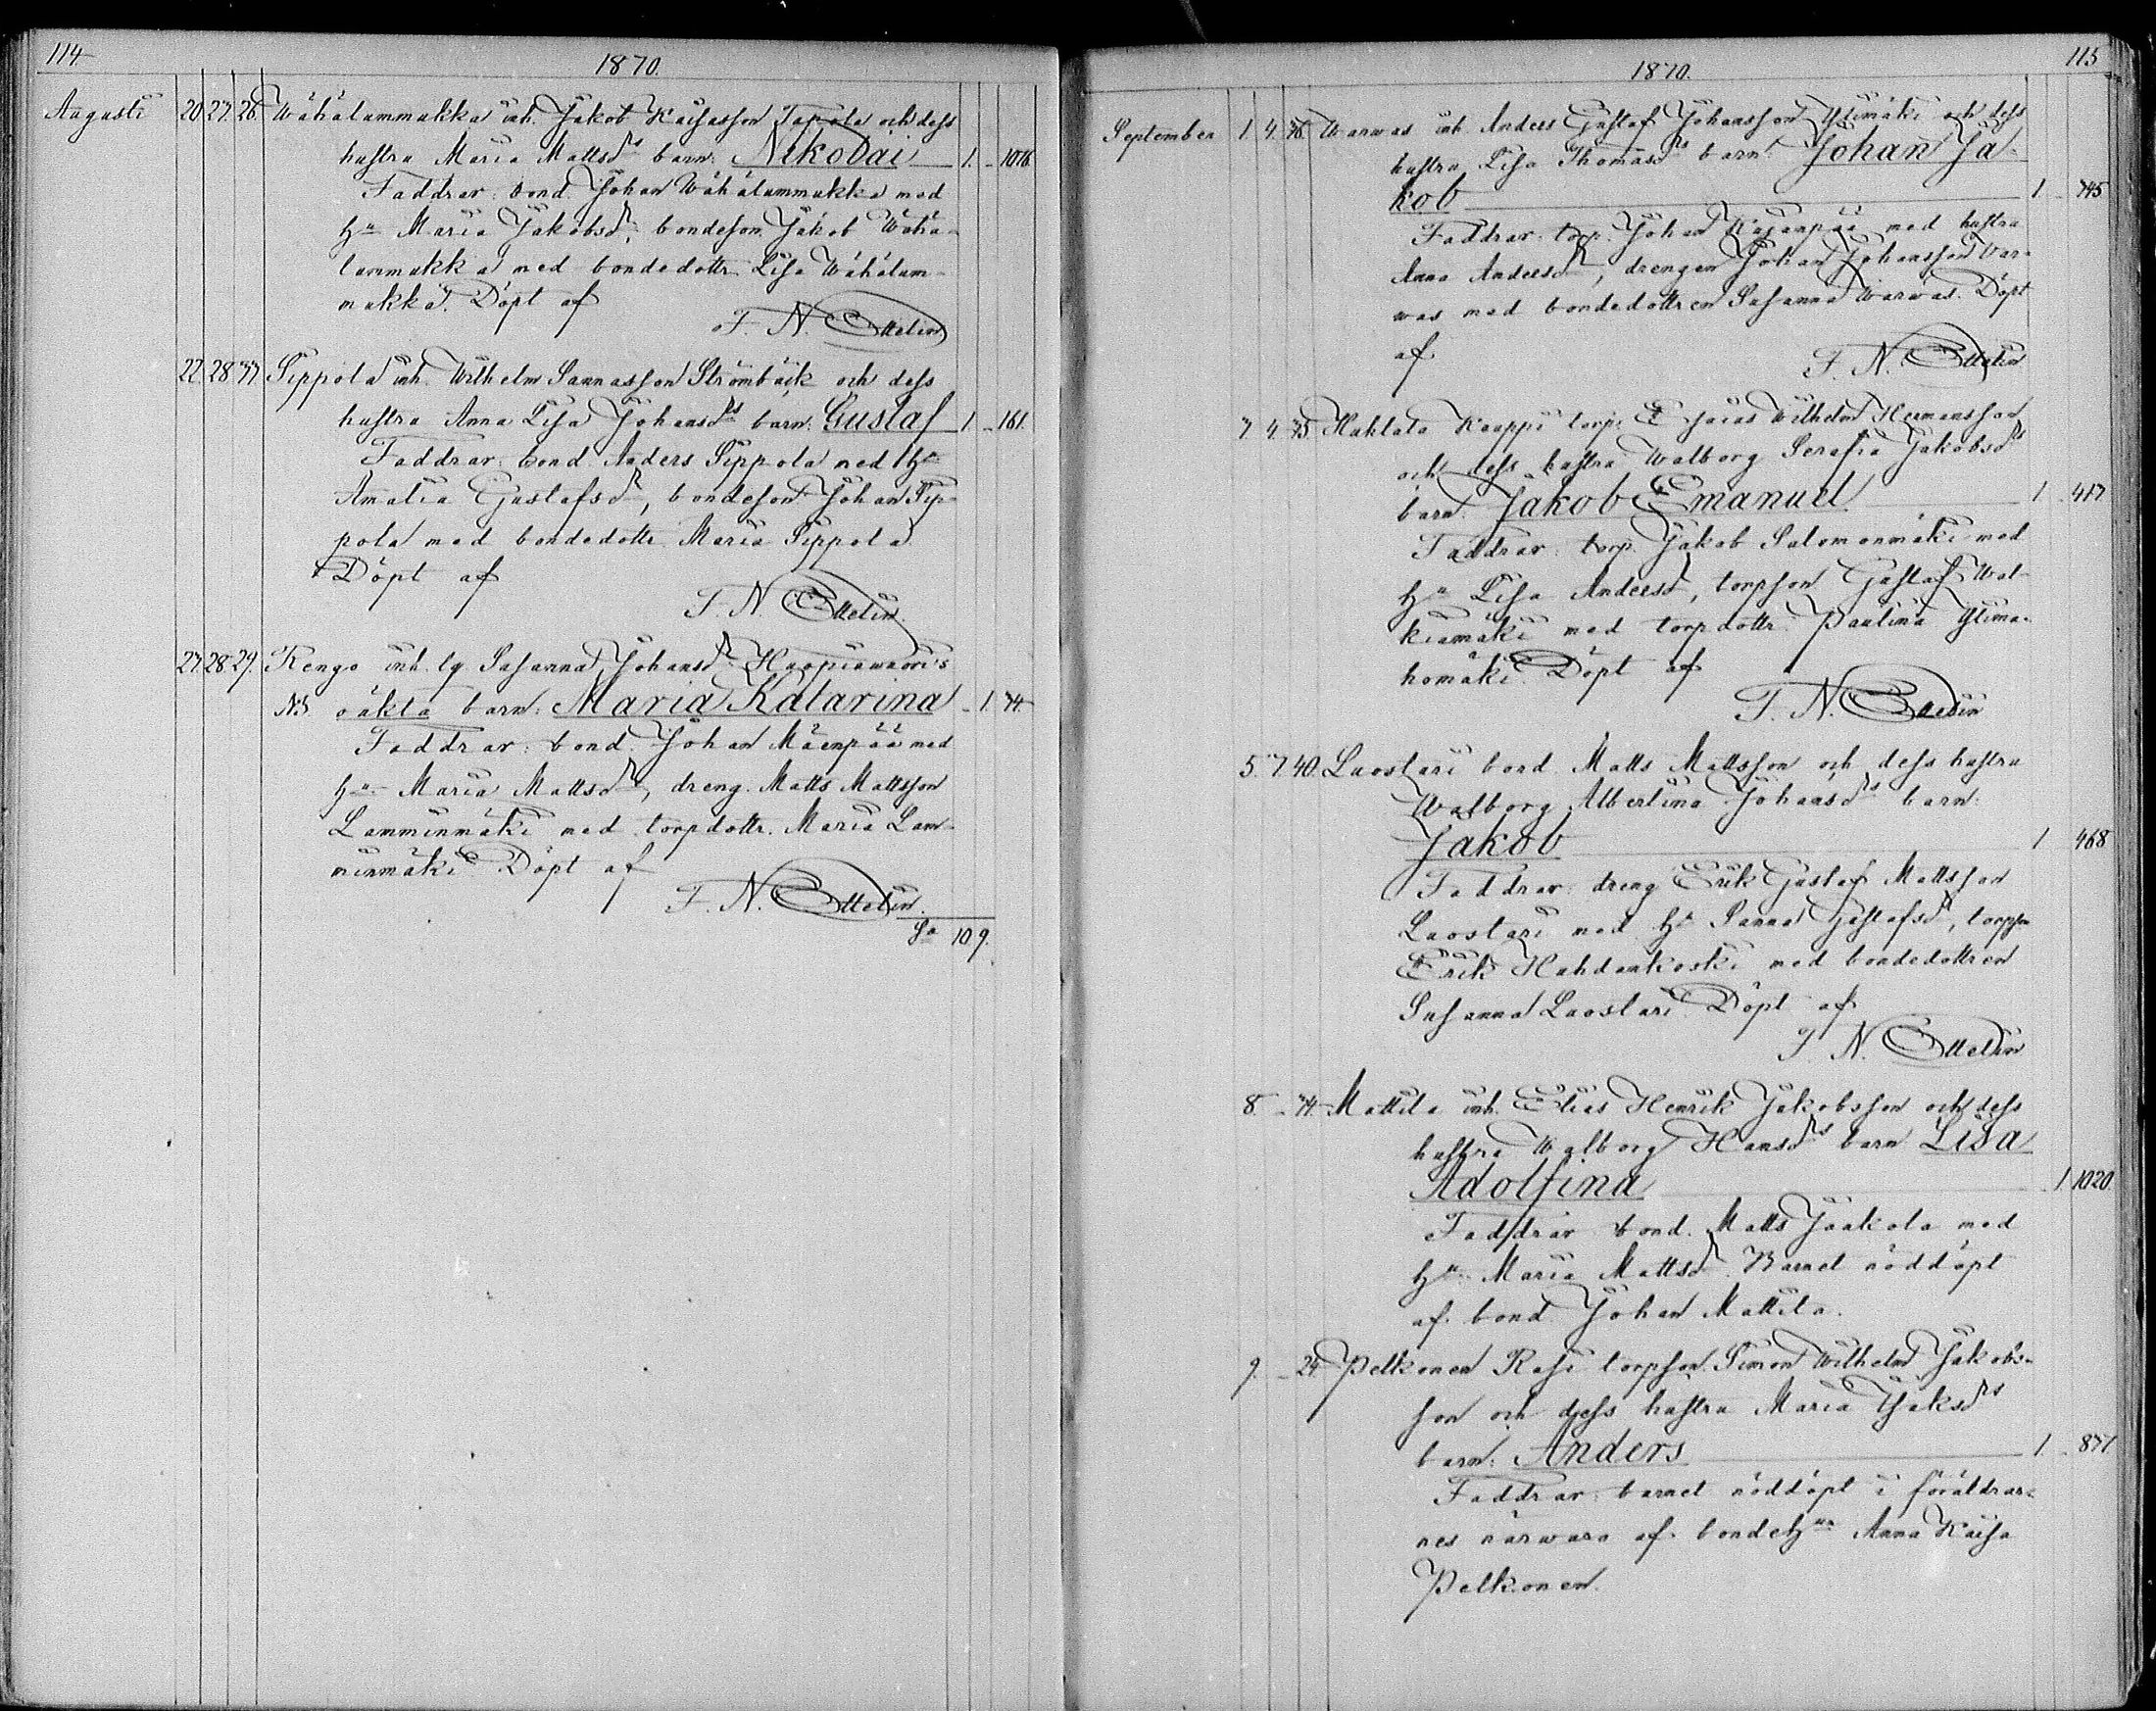 114
1870.
Augusti 20 27. 26. Wähälummukka inh. Jakob Kaisasson Tapola och dess
hustru Maria Mattsdrs barn: Nikolai 1. - 1016
Faddrar: bond. Johan Wähälummukka med
Hu Maria Jakobsdr, bondeson Jakob Wähä-
lummukka med bondedottr. Lisa Wähälum-
mukka. Döpt af
F. N. Ottelin
22. 28 37. Sippola inh. Wilhelm Sannasson Strömbäck och dess
hustru Anna Lisa Johansdrs barn: Gustaf 1 - 161.
Faddrar: bond. Anders Sippola med Hu
Amalia Gustafsdr, bondeson Johan Sip-
pola med bondedottr. Maria Sippola
Döpt af
F. N. Ottelin.
27. 28. 29. Rengo inh. lg Susanna Johansdr
N.B. oäkta barn: Maria Katarina - 1. 74.
Faddrar: bond. Johan Mäenpää med
Hu Maria Mattsdr, dreng. Matts Mattsson
Lamminmäki med torpdottr. Maria Lam-
minmäki Döpt af
F. N. Ottelin.
Sa 10. 9.
115
1870.
September 1 4. 36. Warwas inh. Anders Gustaf Johansson Ylimäki och dess
hustru Lisa Thomasdrs barn: Johan Ja-
kob 1 - 745
Faddrar: torp. Johan Kajanpää med hustru
Anna Andersdr, drengen Johan Johansson War-
was med bondedottren Susanna Warwas. Döpt
af
F. N. Ottelin
4. 35. Haklata Kaappi torp. Esaias Wilhelm Hermansson
och dess hustru Walborg Serafia Jakobsdrs
barn: Jakob Emanuel 1 - 417
Faddrar: torp. Jakob Salomonmäki med
Hu Lisa Andersdr, torpson Gustaf Wal-
kiamäki med torpdottr. Paulina Ylima-
homäki. Döpt af
F. N. Ottelin
5. 7 40. Luostari bond Matts Mattsson och dess hustru
Walborg Albertina Johansdrs barn:
Jakob 1 468
Faddrar: dreng Erik Gustaf Mattsson
Luostari med Hu Sanna Gustafsdr, torpson
Erik Hahdenkoski med bondedottren
Susanna Luostari Döpt af
F. N. Ottelin
8 - 34. Mattila inh. Elias Henrik Jakobsson och dess
hustru Walborg Hansdrs barn Lisa
Adolfina - 1 1020.
Faddrar bond. Matts Jaakola med
Hu Maria Mattsdr. Barnet nöddöpt
af bond Johan Mattila.
9. - 24. Pelkonen Rasi torpson Simon Wilhelm Jakobs-
son och dess hustru Maria Isaksdrs
barn: Anders 1. - 871
Faddrar: barnet nöddöpt i föräldrar-
nes närwaro af bondeHun Anna Kaisa
Pelkonen.